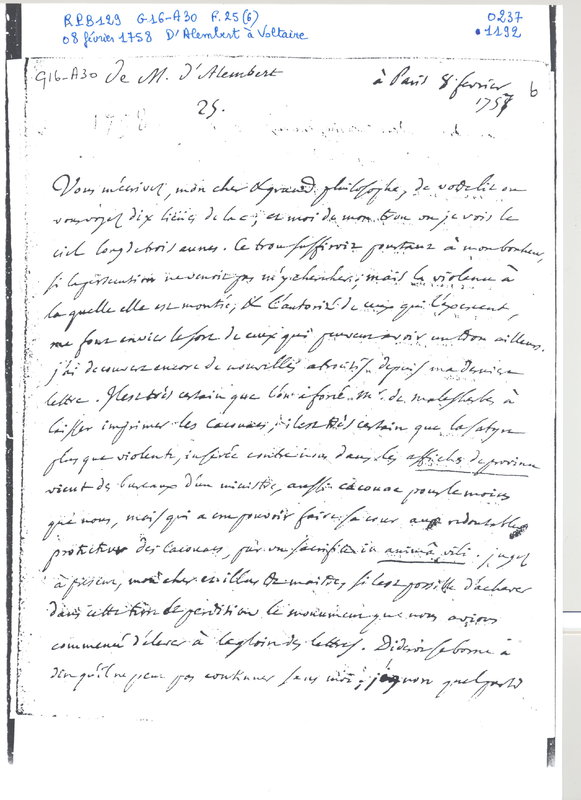 RPB129 G16-A30 F.25(6)
08 février 1758 D'Alembert à Voltaire
0237
1192
G16-A30 De M. d'Alembert
à Paris 8 fevrier
1757
6
25.
Vous m'écrivez, mon cher & grand philosophe, de votre lit ou
vous voyez dix lieües de lac; et moi de mon trou ou je vois le
ciel long de trois aunes. Ce trou suffiroit pourtant à mon bonheur,
si la persécution ne venoit pas m'y chercher; mais la violence à
laquelle elle est montée, & l'autorité de ceux qui l'exercent,
me font envier le sort de ceux qui peuvent avoir un trou ailleurs.
j'ai decouvert encore de nouvelles atrocités depuis ma derniere
lettre. Il est très certain que l'on a forcé Mr. de malesherbes à
laisser imprimer les cacouacs; il est très certain que la satyre
plus que violente, inserée contre nous dans les affiches de province
vient des bureaux d'un ministre, aussi cacouac pour le moins
que nous, mais qui a cru pouvoir faire sa cour aux redoutables
protecteurs des cacouacs, par un sacrifice in animâ vili. jugez
à présent, mon cher et illustre maitre, s'il est possible d'achever
dans cette de perdition le monument que nous avions
commencé d'elever à la gloire des lettres. Diderot se borne à
dire qu'il ne peut pas continuer sans moi; j'ignore quel parti